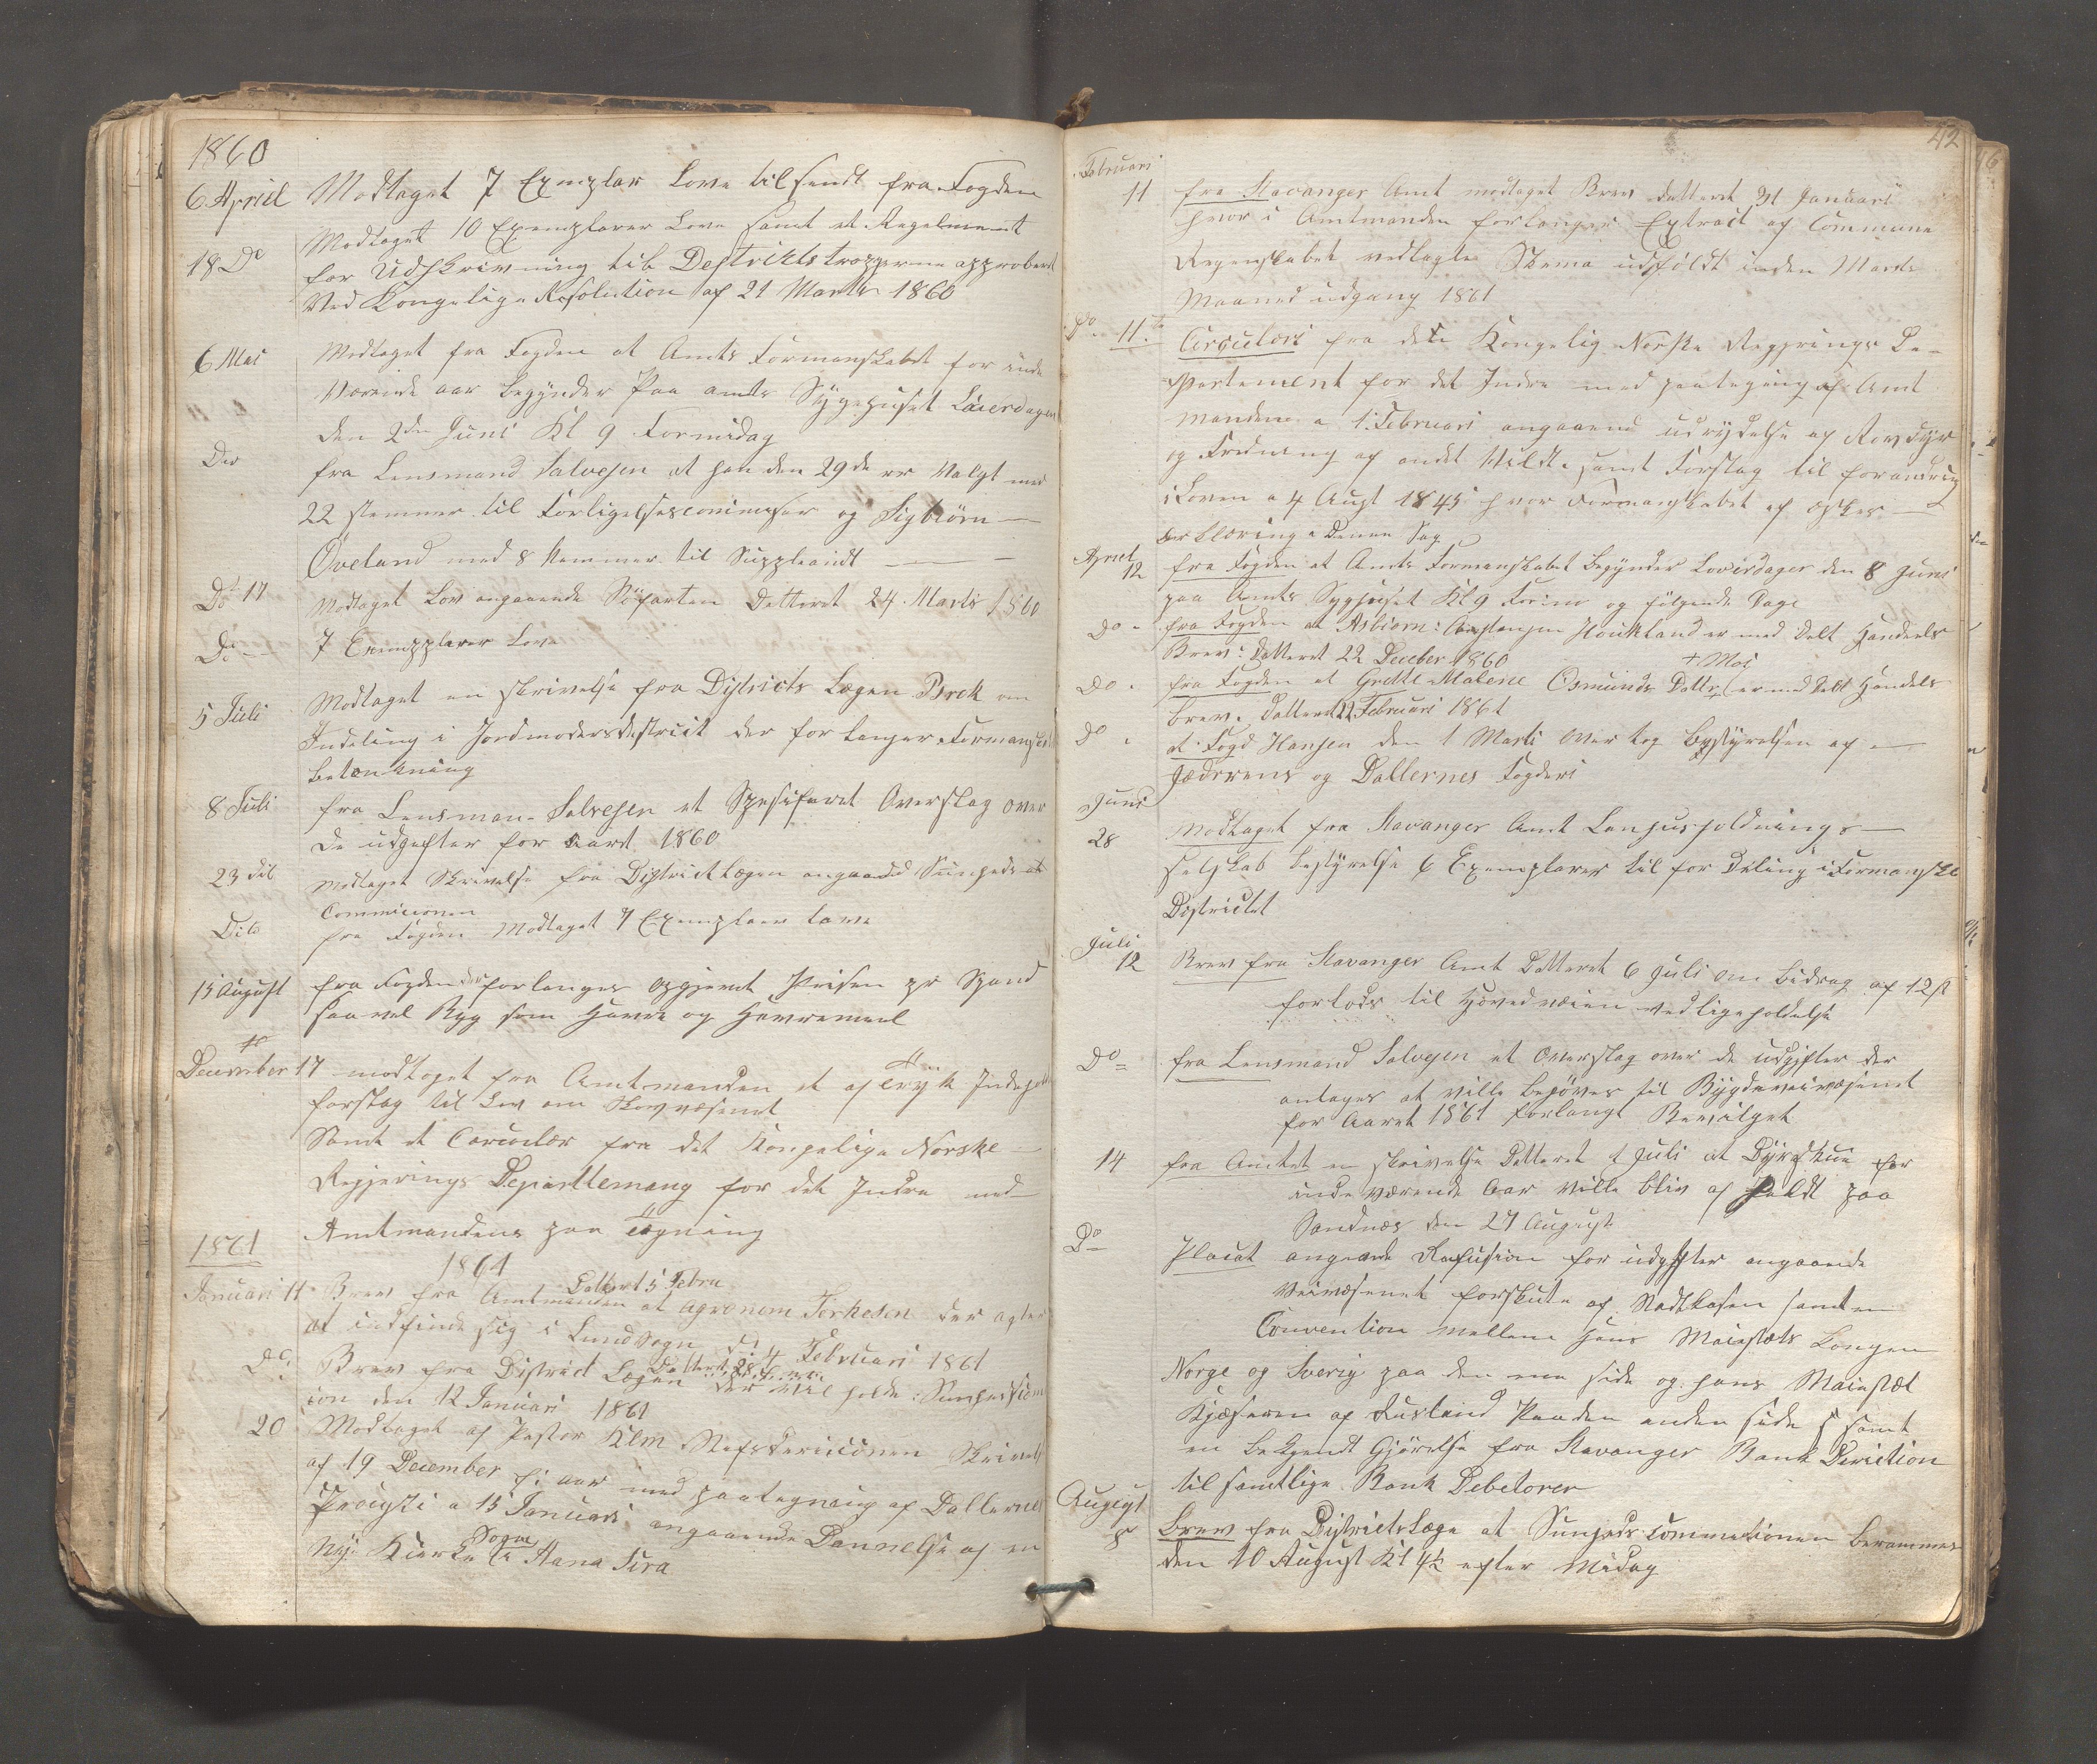 1860
6 April Modtaget 7 Exemplar Love tilsendt fra Fogden
18 Do Modtaget 10 Exemplarer Love samt et Regelment
for Udskrivning til Destrikts tropperne approbert
Ved Kongelige Resolution af 21 Marts 1860
6 Mai Modtaget fra Fogden at Amts Formanskabet for inde
Værende aar begynder Paa amts Sygehuset Løverdagen
den 2den Juni Kl 9 Formidag
Do fra Lensmand Salvesen at han den 29de er Valgt med
22 stemmer til Forligelsescommisær og Sigbiørn
Øveland med 8 stemmer til Suppleandt
Do 17 Modtaget Lov angaaende Søfarten Datteret 24 Marts 1860
Do 7 Exempplarer Love
5 Juli Modtaget en skrivelse fra Districts Lægen Brck om
Indeling i Jordmodersdistrict der forlanger Formandsk
betænkning
8 Juli fra Lensman Salvesen et Spesiferet Overslag over
De udgifter for aaret 1860
23 dito Modtaget Skrivelse fra Districtlægen angaaend Sunheds
Commisionen
Dito fra Fogden Modtaget 7 Exemplarer Love
15 August fra Fogden der forlanges opgjevet Prisen pr Spand
saavel Byg som Havre og Havremeel
December 17 modtaget fra Amtmanden et aftryk Indeholdt
forslag til Lov om Skovvæsenet
Samt et Carculær fra det Kongelige Norske
Regjerings Depardtemang for det Indre med
Amtmandens paa Tegning
1861
1861
Januari 11 Brev fra Amtmanden Datteret 5 Febru at Agronom Torkesen der agter
at indfinde sig i Lund Sogn d 4 Februari 1861
Do Brev fra District Lægen Datteret 28 der vil holde Sunhedscom
ion den 12 Januari 1861
20 Modtaget af Pastor Klem Skrivels
af 19 December f: aar med paategning af Dallernes
Provsti a 15 Januari angaaende Dannelse af en
Ny Kierke Sogne i Aana Sira
42
Februari
11 fra Stavanger Amt modtaget Brev datteret 31 Januari
hvor i Amtmanden forlanger Extract af Commune
Regenskabet vedlagte Skema udføldt inden Marts
Maaned udgang 1861
Do 11te Circulær fra dete Kongelig Norske Regjerings De-
partement for det Indre med paategning af Amt
manden a 1 Februari angaaend udrydelse af Rovdyr
og Fredning af andet Vildt samt Forslag til forandring
i Loven a 4 Augt 1845 hvor Formanskabet af æskes
erklæring i denne Sag
April
12 fra Fogden at Amts Formanskabet Begynder Loverdagen den 8 Juni
paa Amts Syghuset Kl 9 Form og følgende Dage
Do fra Fogden at Asbiørn Houkland er med Delt Handels
Brev: Datteret 22 Deceber 1860
+ Moi
Do fra Fogden at Grette Malene Osmunds Datter er med Delt Handels
brev Datteret 22 Februari 1861
Do at Fogd Hansen den 1 Marti Over tog Bestyrelsen af
Jæderens og Dallernes Fogderi
Juni
28 Modtaget fra Stavanger Amt Lanhusholdnings
selskab bestyrelse 6 Exemplarer til for Deling i Formansk
Districtet
Juli
12 Brev fra Stavanger Amt Datteret 6 Juli om Bidrag af 12 s
forlods til Hovedveien vedligeholdelse
Do fra Lensmand Salvesen et Overslag over de udgifter der
antages at ville behøves til Bygdeveivæsenet
for Aaret 1861 forlangt Bevilget
14 fra Amtet en skrivelse Datteret 1 Juli at Dyreskue for
inde værende Aar ville bliv af holdt paa
Sandnæs den 27 August
Do Placat angaaende Refusion for udgifter angaaende
Veivæsenet forskute af Stadtkasen samt en
Convention mellem Hans Maiestæts Kongen
Norge og Sverig paa den ene side og hans Maiestæt
Kjæseren af Rusland Paa den anden side samt
en Bekjendt Gjørelse fra Stavanger Bank Deriction
til samtlige Bank Debetorer
August
8 Brev fra Districtslæge at Sunheds commetionen Berammes
den 10 August Kl 4½ efter Midag